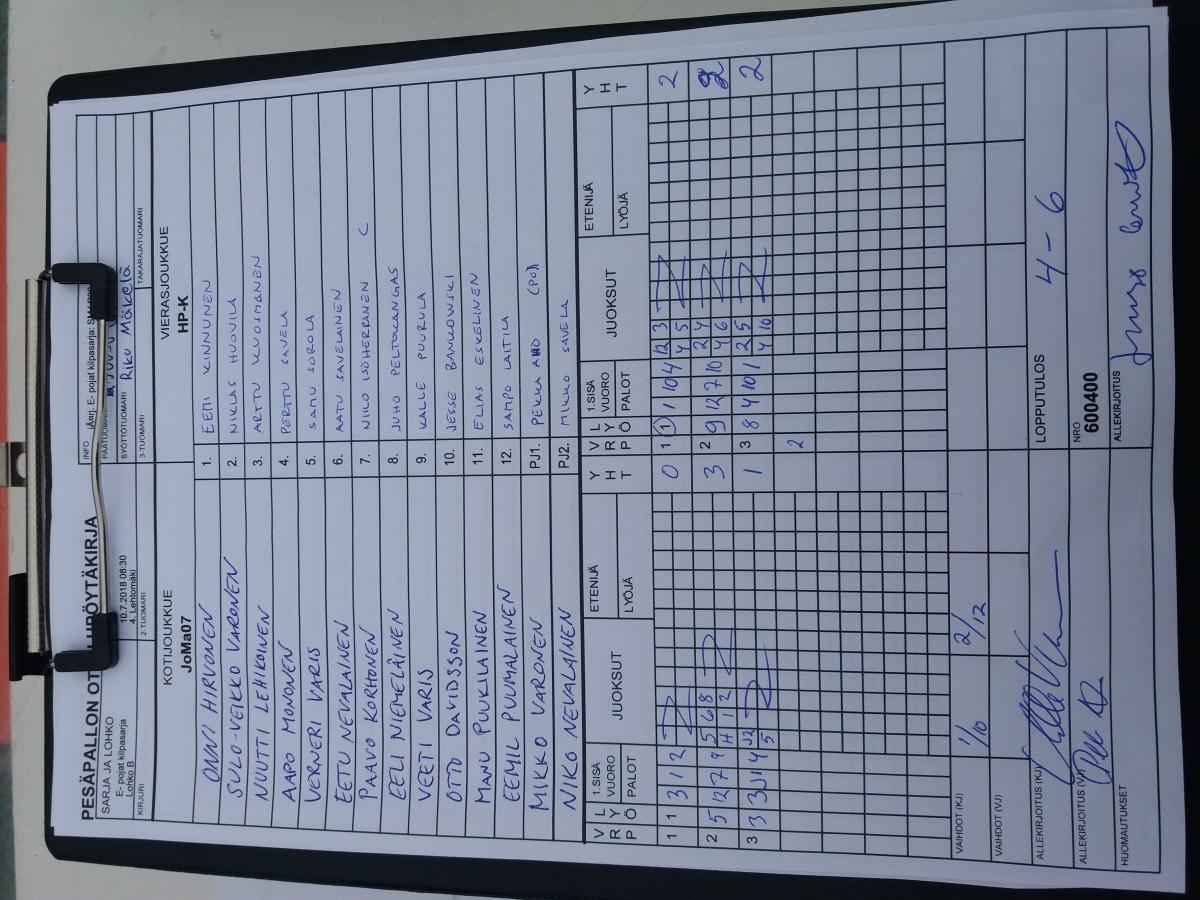 PESÄPALLON OT LUPÖYTÄKIRJA
INFO
Änrj. E- pojat kilpasarja:
SARJA JA LOHKO
E- pojat kilpasarja
Lohko B
10.7.2018 08:30
4. Lehtomäki
PÄÄTUOMARI
SYÖTTÖTUOMARI Riku Mäkelä
KIRJURI 2-TUOMARI 3-TUOMARI TAKARAJATUOMARI
KOTIJOUKKUE VIERASJOUKKUE
JoMa07 HP-K
ONNI HIRVONEN 1. EEMI KINNUNEN
SULO-VEIKKO VARONEN 2. NIKLAS HUOVILA
NUUTTI LEHIKOINEN 3. ARTTU KUOSMANEN
AAPO MONONEN 4. PERTTU SAVELA
VERNERI VARIS 5. SAMU SOROLA
EETU NEVALAINEN 6. AATU SAVELAINEN
PAAVO KORHONEN 7. NIILO ISOHERRANEN C
EELI NIEMELÄINEN 8. JUHO PELTOKANGAS
VEETI VARIS 9. KALLE PUURULA
OTTO DAVIDSSON 10. JESSE BANKOWSKI
MANU PUUKILAINEN 11. ELIAS ESKELINEN
EEMIL PUUMALAINEN 12. SAMPO LAITILA
MIKKO VARONEN PJ1. PEKKA AHO
NIKO NEVALAINEN PJ2. MIKKO SAVELA
V R P L Y Ö 1.SISÄ VUORO PALOT JUOKSUT ETENIJÄ LYÖJÄ Y H T V R P L Y Ö 1.SISÄ VUORO PALOT JUOKSUT ETENIJÄ LYÖJÄ Y H T
1 1 3 1 2 0 1 1 1 10 4 12 3 2
4 5
2 5 12 7 9 5 6 8 3 2 9 12 7 10 2 4 2
H 1 2 4 6
3 3 3 1 4 12 1 3 8 4 10 1 2 5 2
5 4 10
2
VAIHDOT (KJ) 1/10 2/12
VAIHDOT (VJ)
ALLEKIRJOITUS (KJ) LOPPUTULOS 4-6
ALLEKIRJOITUS (VJ) NRO
600400
HUOMAUTUKSET ALLEKIRJOITUS